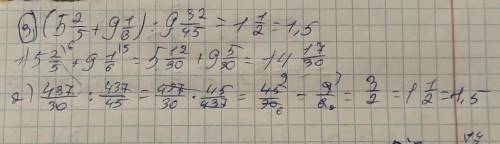 3) (5 2/5 + 9 1/6) : 9 32/45 = 1 1/2 = 1,5
1) 5 2/5 \6 + 9 1/6 \5 = 5 12/30 + 9 5/30 = 14 17/30
2) 437/30 : 437/45 = 437/30 · 45/437 = 45/30 = 9/6 = 3/2 = 1 1/2 = 1,5